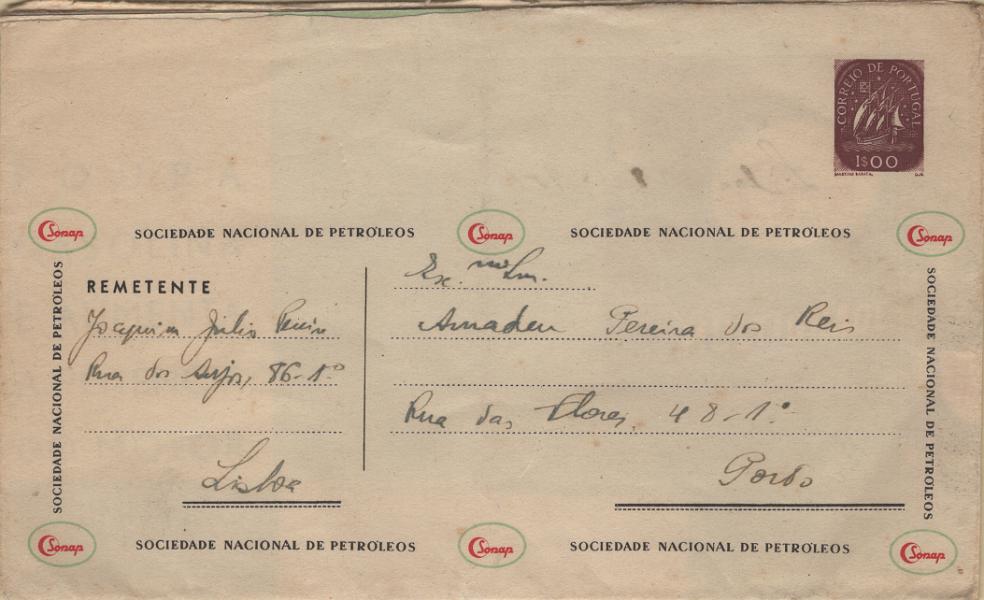 CORREIO DE PORTUGAL
1$00
Sonap SOCIEDADE NACIONAL DE PETRÓLEOS Sonap SOCIEDADE NACIONAL DE PETRÓLEOS Sonap
SOCIEDADE NACIONAL DE PETRÓLEOS
REMETENTE
Joaquim Júlio Pereira
Rua dos Anjos, 86-1º
Lisboa
Ex.mo Snr.
Amadeu Pereira dos Reis
Rua das Flores, 48-1º
Porto
SOCIEDADE NACIONAL DE PETRÓLEOS
Sonap SOCIEDADE NACIONAL DE PETRÓLEOS Sonap SOCIEDADE NACIONAL DE PETRÓLEOS Sonap